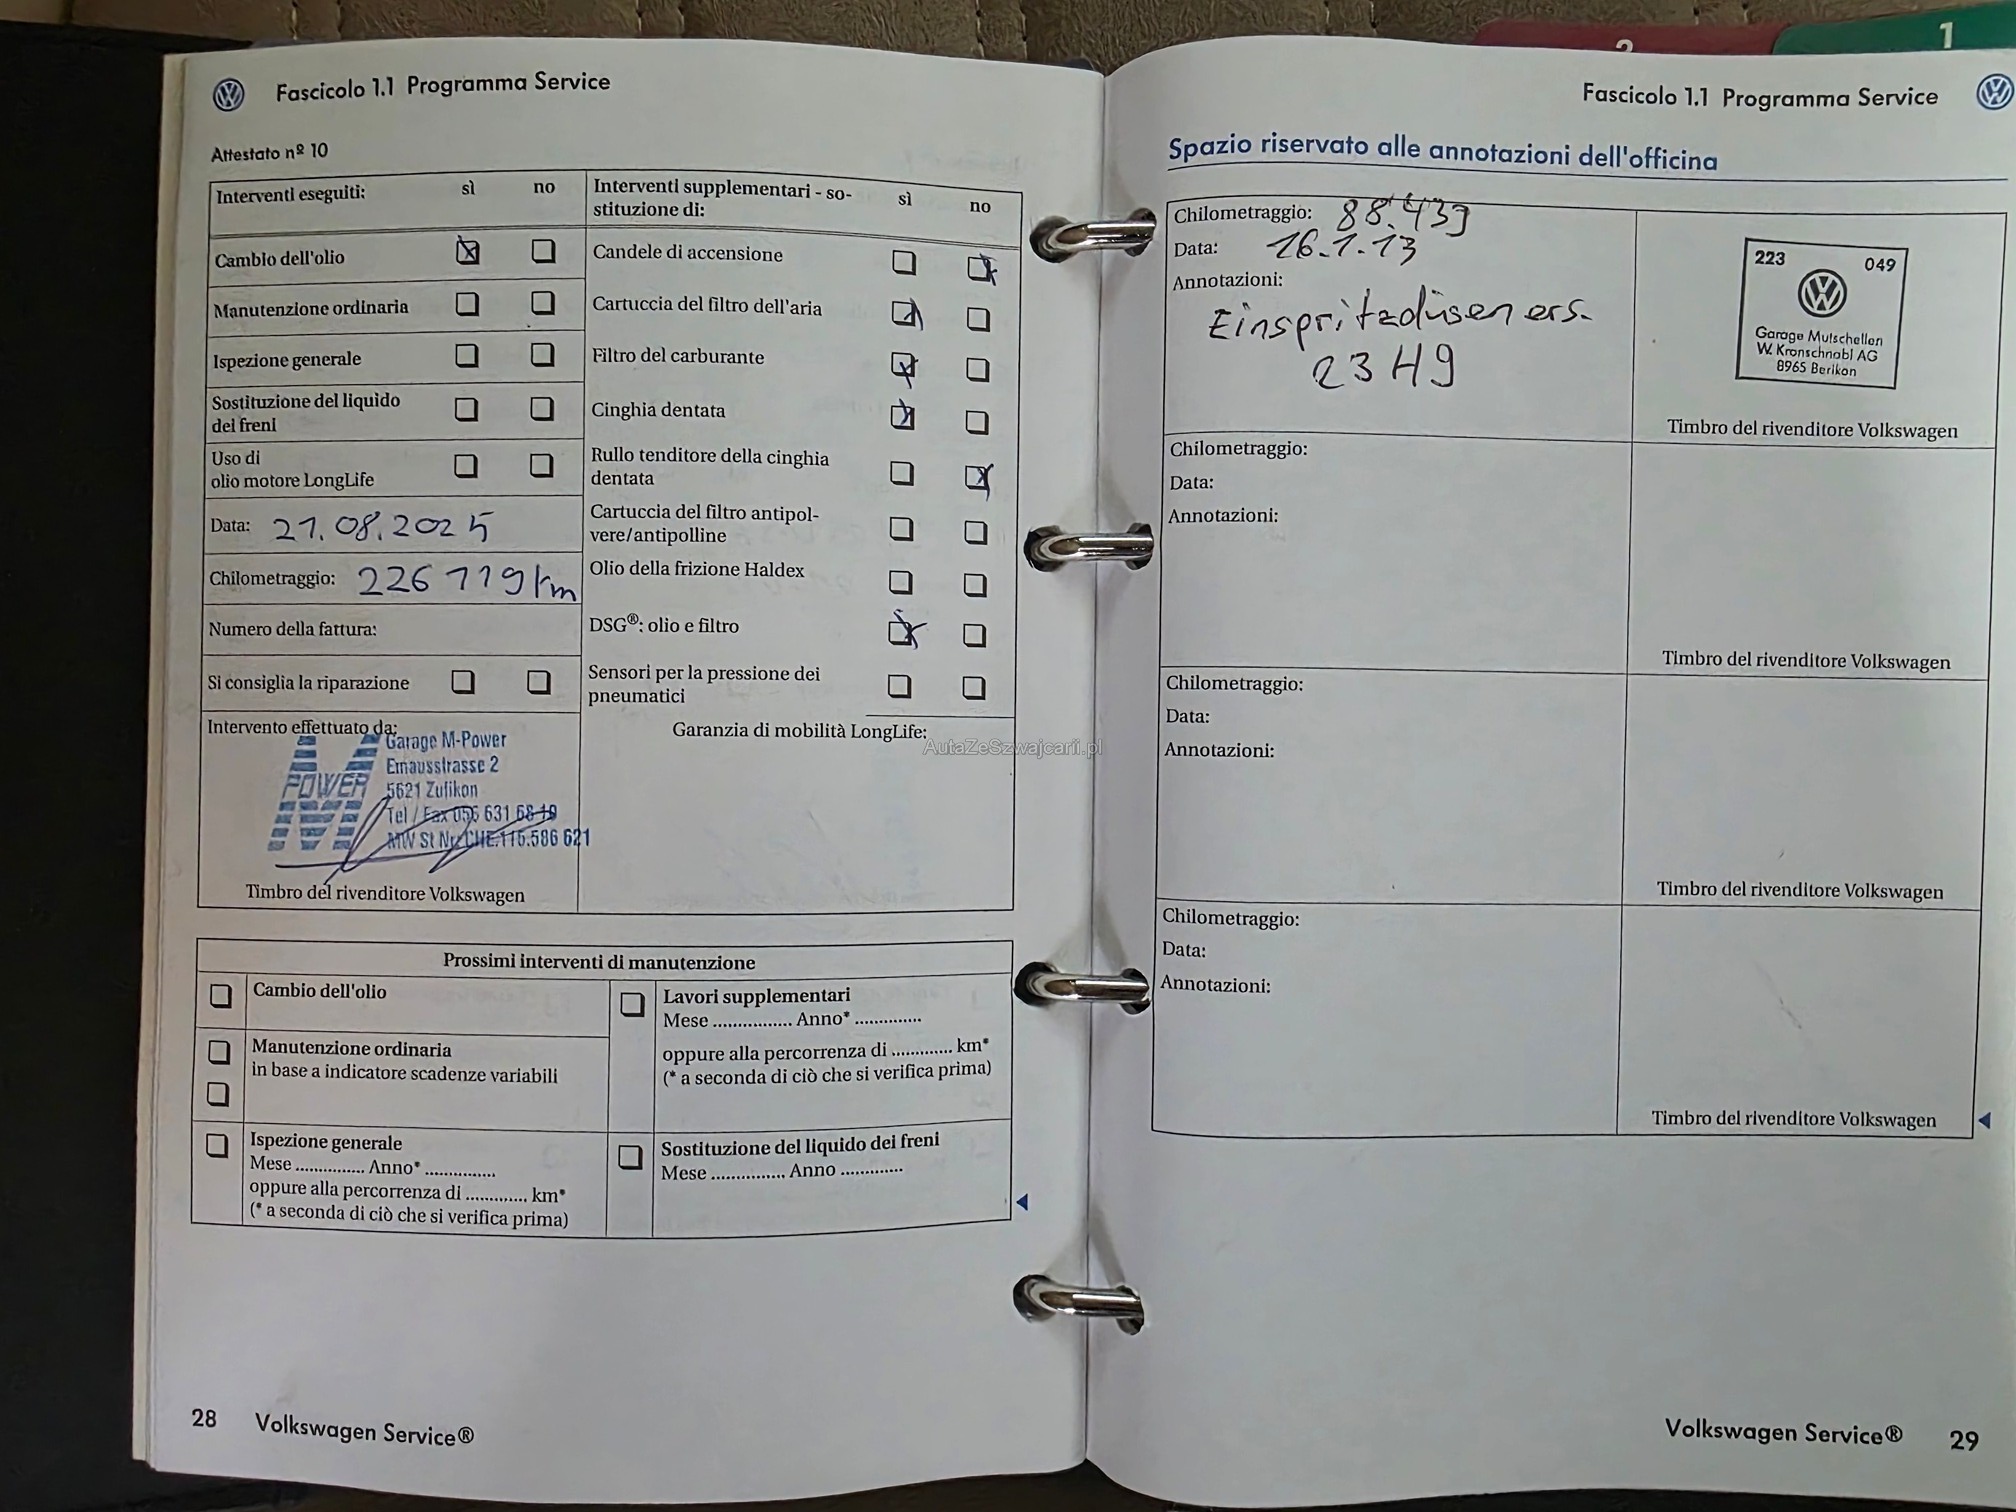 Fascicolo 1.1 Programma Service
Attestato nº 10
Interventi eseguiti: sì no
Cambio dell'olio
Manutenzione ordinaria
Ispezione generale
Sostituzione del liquido
dei freni
Uso di
olio motore LongLife
Data: 21.08.2025
Chilometraggio: 226 119 km
Numero della fattura:
Si consiglia la riparazione
Intervento effettuato da:
M
POWER
Garage M-Power
Emausstrasse 2
5621 Zufikon
Tel / Fax 056 631 68 19
MW St Nr. CHE.115.586 621
Timbro del rivenditore Volkswagen
Interventi supplementari - so-
stituzione di: sì no
Candele di accensione
Cartuccia del filtro dell'aria
Filtro del carburante
Cinghia dentata
Rullo tenditore della cinghia
dentata
Cartuccia del filtro antipol-
vere/antipolline
Olio della frizione Haldex
DSG®: olio e filtro
Sensori per la pressione dei
pneumatici
Garanzia di mobilità LongLife:
AutaZeSzwajcarii.pl
Prossimi interventi di manutenzione
Cambio dell'olio
Manutenzione ordinaria
in base a indicatore scadenze variabili
Ispezione generale
Mese ............... Anno* ...............
oppure alla percorrenza di ............. km*
(* a seconda di ciò che si verifica prima)
Lavori supplementari
Mese ................ Anno* ..............
oppure alla percorrenza di ............. km*
(* a seconda di ciò che si verifica prima)
Sostituzione del liquido dei freni
Mese ................ Anno .............
28 Volkswagen Service®
2
1
Fascicolo 1.1 Programma Service
Spazio riservato alle annotazioni dell'officina
Chilometraggio: 88.439
Data: 16.1.13
Annotazioni:
Einspritzdüsen ers.
23H9
223 049
Garage Mutschellen
W. Kronschnabl AG
8965 Berikon
Timbro del rivenditore Volkswagen
Chilometraggio:
Data:
Annotazioni:
Timbro del rivenditore Volkswagen
Chilometraggio:
Data:
Annotazioni:
Timbro del rivenditore Volkswagen
Chilometraggio:
Data:
Annotazioni:
Timbro del rivenditore Volkswagen
Volkswagen Service® 29